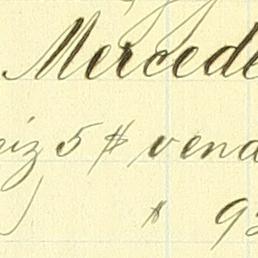 Mercede
eiz 5 $ vend
$ 93